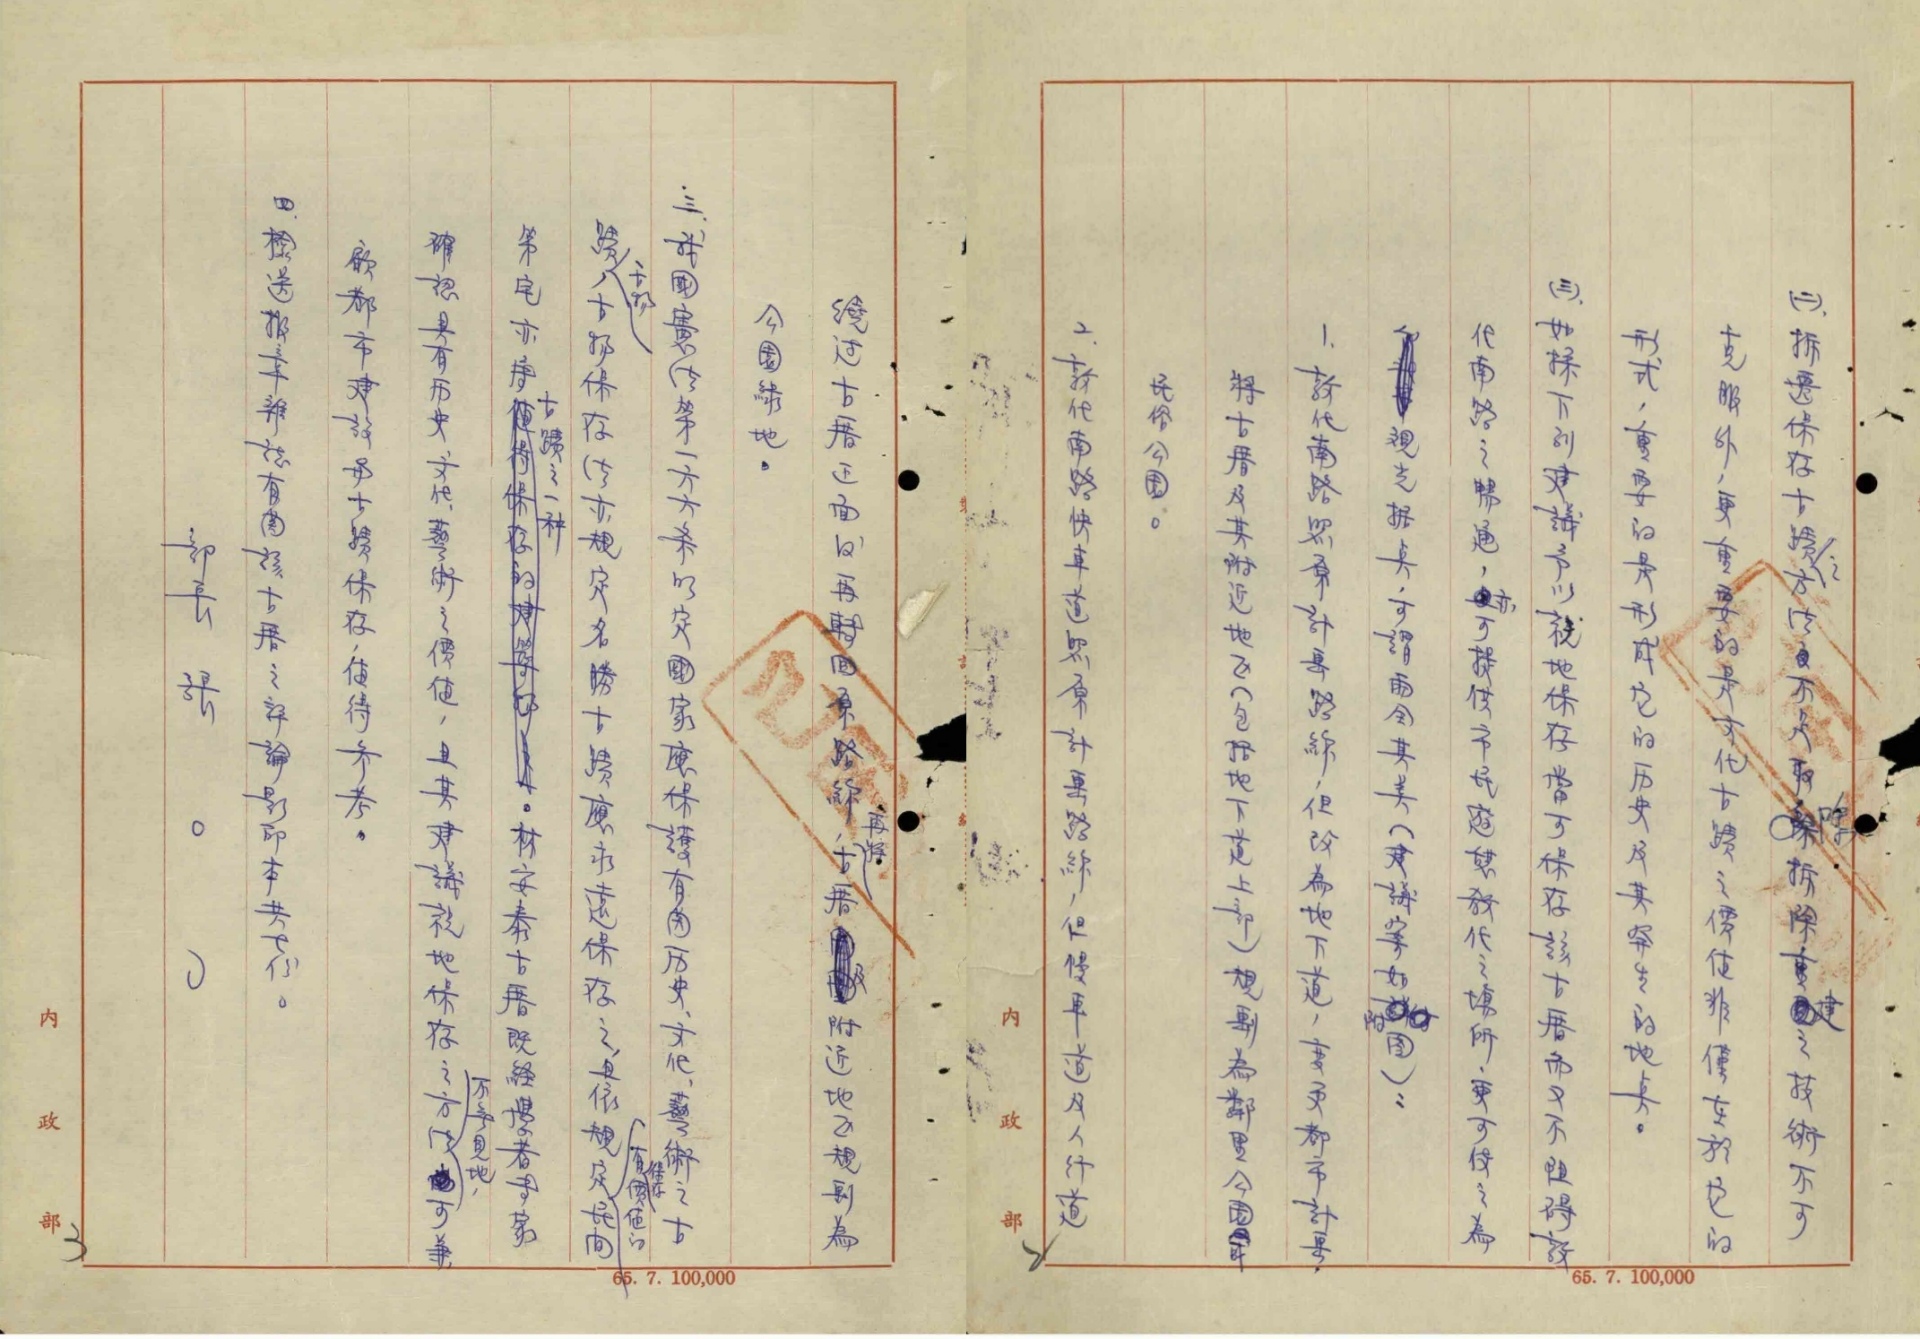 (二)、拆遷保存古蹟之方法不足取、除拆除重建之技術不可
克服外,更重要的是文化古蹟之價值非僅在於它的
形式,重要的是形成它的历史及其发生的地点。
(三)、如採下列建議予以就地保存當可保存該古厝而又不阻碍敦
化南路之暢通,亦可提供市民遊憩教化之場所,更可使之為
觀光据点,可謂兩全其美(建議案如附图):
1. 敦化南路照原計畫路線,但改為地下道,变更都市計畫,
將古厝及其附近地区(包括地下道上部)規劃為鄰里公園
民俗公園。
2. 敦化南路快車道照原計畫路線,但慢車道及人行道
2
內政部
65. 7. 100,000
繞过古厝正面後再轉回原路線,再將古厝及附近地区規劃為
公園綠地。
三、我國憲法第一六六条明定國家應保護有関历史、文化、藝術之古
蹟、古物,古物保存法亦規定名勝古蹟應永遠保存之,且依規定民間有價值的
第宅亦屬古蹟之一种。林安泰古厝既経學者專家
確認具有历史、文化、藝術之價值,且其建議就地保存之方法不無見地,可兼
顧都市建設与古蹟保存,值待参考。
四、檢送报章雜誌有関該古厝之評論影印本共七份。
部長 張 ○ ○
3
內政部
65. 7. 100,000